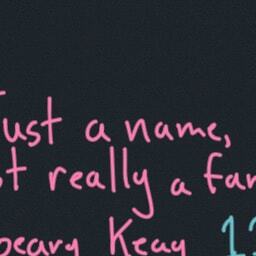 Just a name,
st really a fan
peary Keay 12